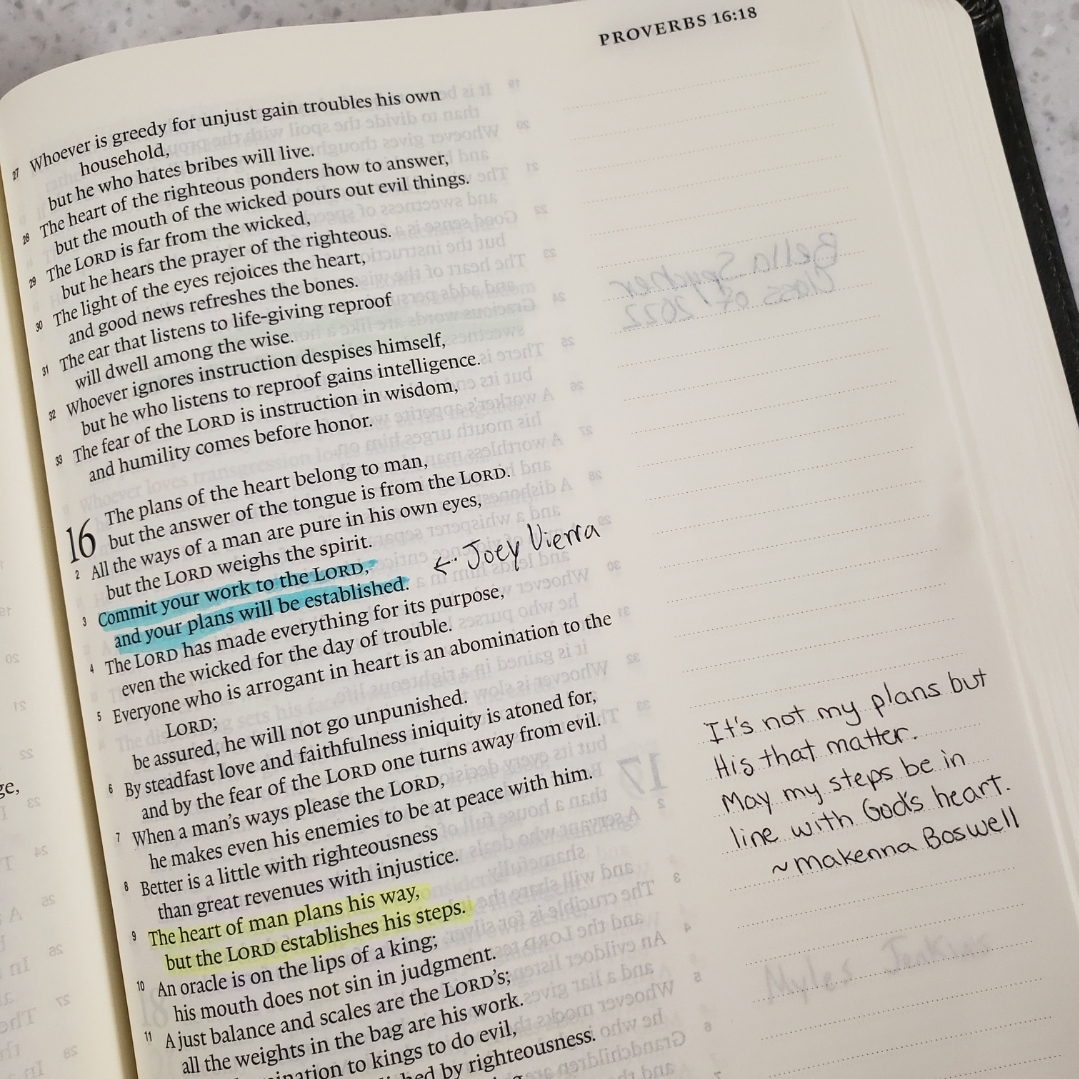 PROVERBS 16:18
27 Whoever is greedy for unjust gain troubles his own
household,
but he who hates bribes will live.
28 The heart of the righteous ponders how to answer,
but the mouth of the wicked pours out evil things.
29 The LORD is far from the wicked,
but he hears the prayer of the righteous.
30 The light of the eyes rejoices the heart,
and good news refreshes the bones.
31 The ear that listens to life-giving reproof
will dwell among the wise.
32 Whoever ignores instruction despises himself,
but he who listens to reproof gains intelligence.
33 The fear of the LORD is instruction in wisdom,
and humility comes before honor.
16 The plans of the heart belong to man,
but the answer of the tongue is from the LORD.
2 All the ways of a man are pure in his own eyes,
but the LORD weighs the spirit.
3 Commit your work to the LORD,
and your plans will be established.
← Joey Vierra
4 The LORD has made everything for its purpose,
even the wicked for the day of trouble.
5 Everyone who is arrogant in heart is an abomination to the
LORD;
be assured, he will not go unpunished.
6 By steadfast love and faithfulness iniquity is atoned for,
and by the fear of the LORD one turns away from evil.
7 When a man's ways please the LORD,
he makes even his enemies to be at peace with him.
8 Better is a little with righteousness
than great revenues with injustice.
9 The heart of man plans his way,
but the LORD establishes his steps.
10 An oracle is on the lips of a king;
his mouth does not sin in judgment.
11 A just balance and scales are the LORD's;
all the weights in the bag are his work.
to kings to do evil,
by righteousness.
It's not my plans but
His that matter.
May my steps be in
line with God's heart.
~Makenna Boswell
Myles Jenkins